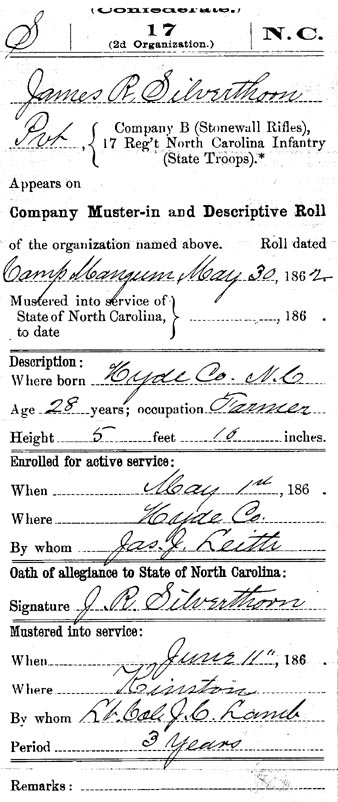 (Confederate.)
S 17 N.C.
(2d Organization.)
James R. Silverthorn
Pvt, { Company B (Stonewall Rifles),
17 Reg't North Carolina Infantry
(State Troops).*
Appears on
Company Muster-in and Descriptive Roll
of the organization named above. Roll dated
Camp Mangum, May 30, 1862.
Mustered into service of
State of North Carolina, } , 186 .
to date
Description:
Where born Hyde Co. N.C
Age 28 years; occupation Farmer
Height 5 feet 10 inches.
Enrolled for active service:
When May 1st, 186 .
Where Hyde Co.
By whom Jas. J. Leith
Oath of allegiance to State of North Carolina:
Signature J. R. Silverthorn
Mustered into service:
When June 11", 186 .
Where Kinston
By whom Lt. Col. J. C. Lamb
Period 3 Years
Remarks: